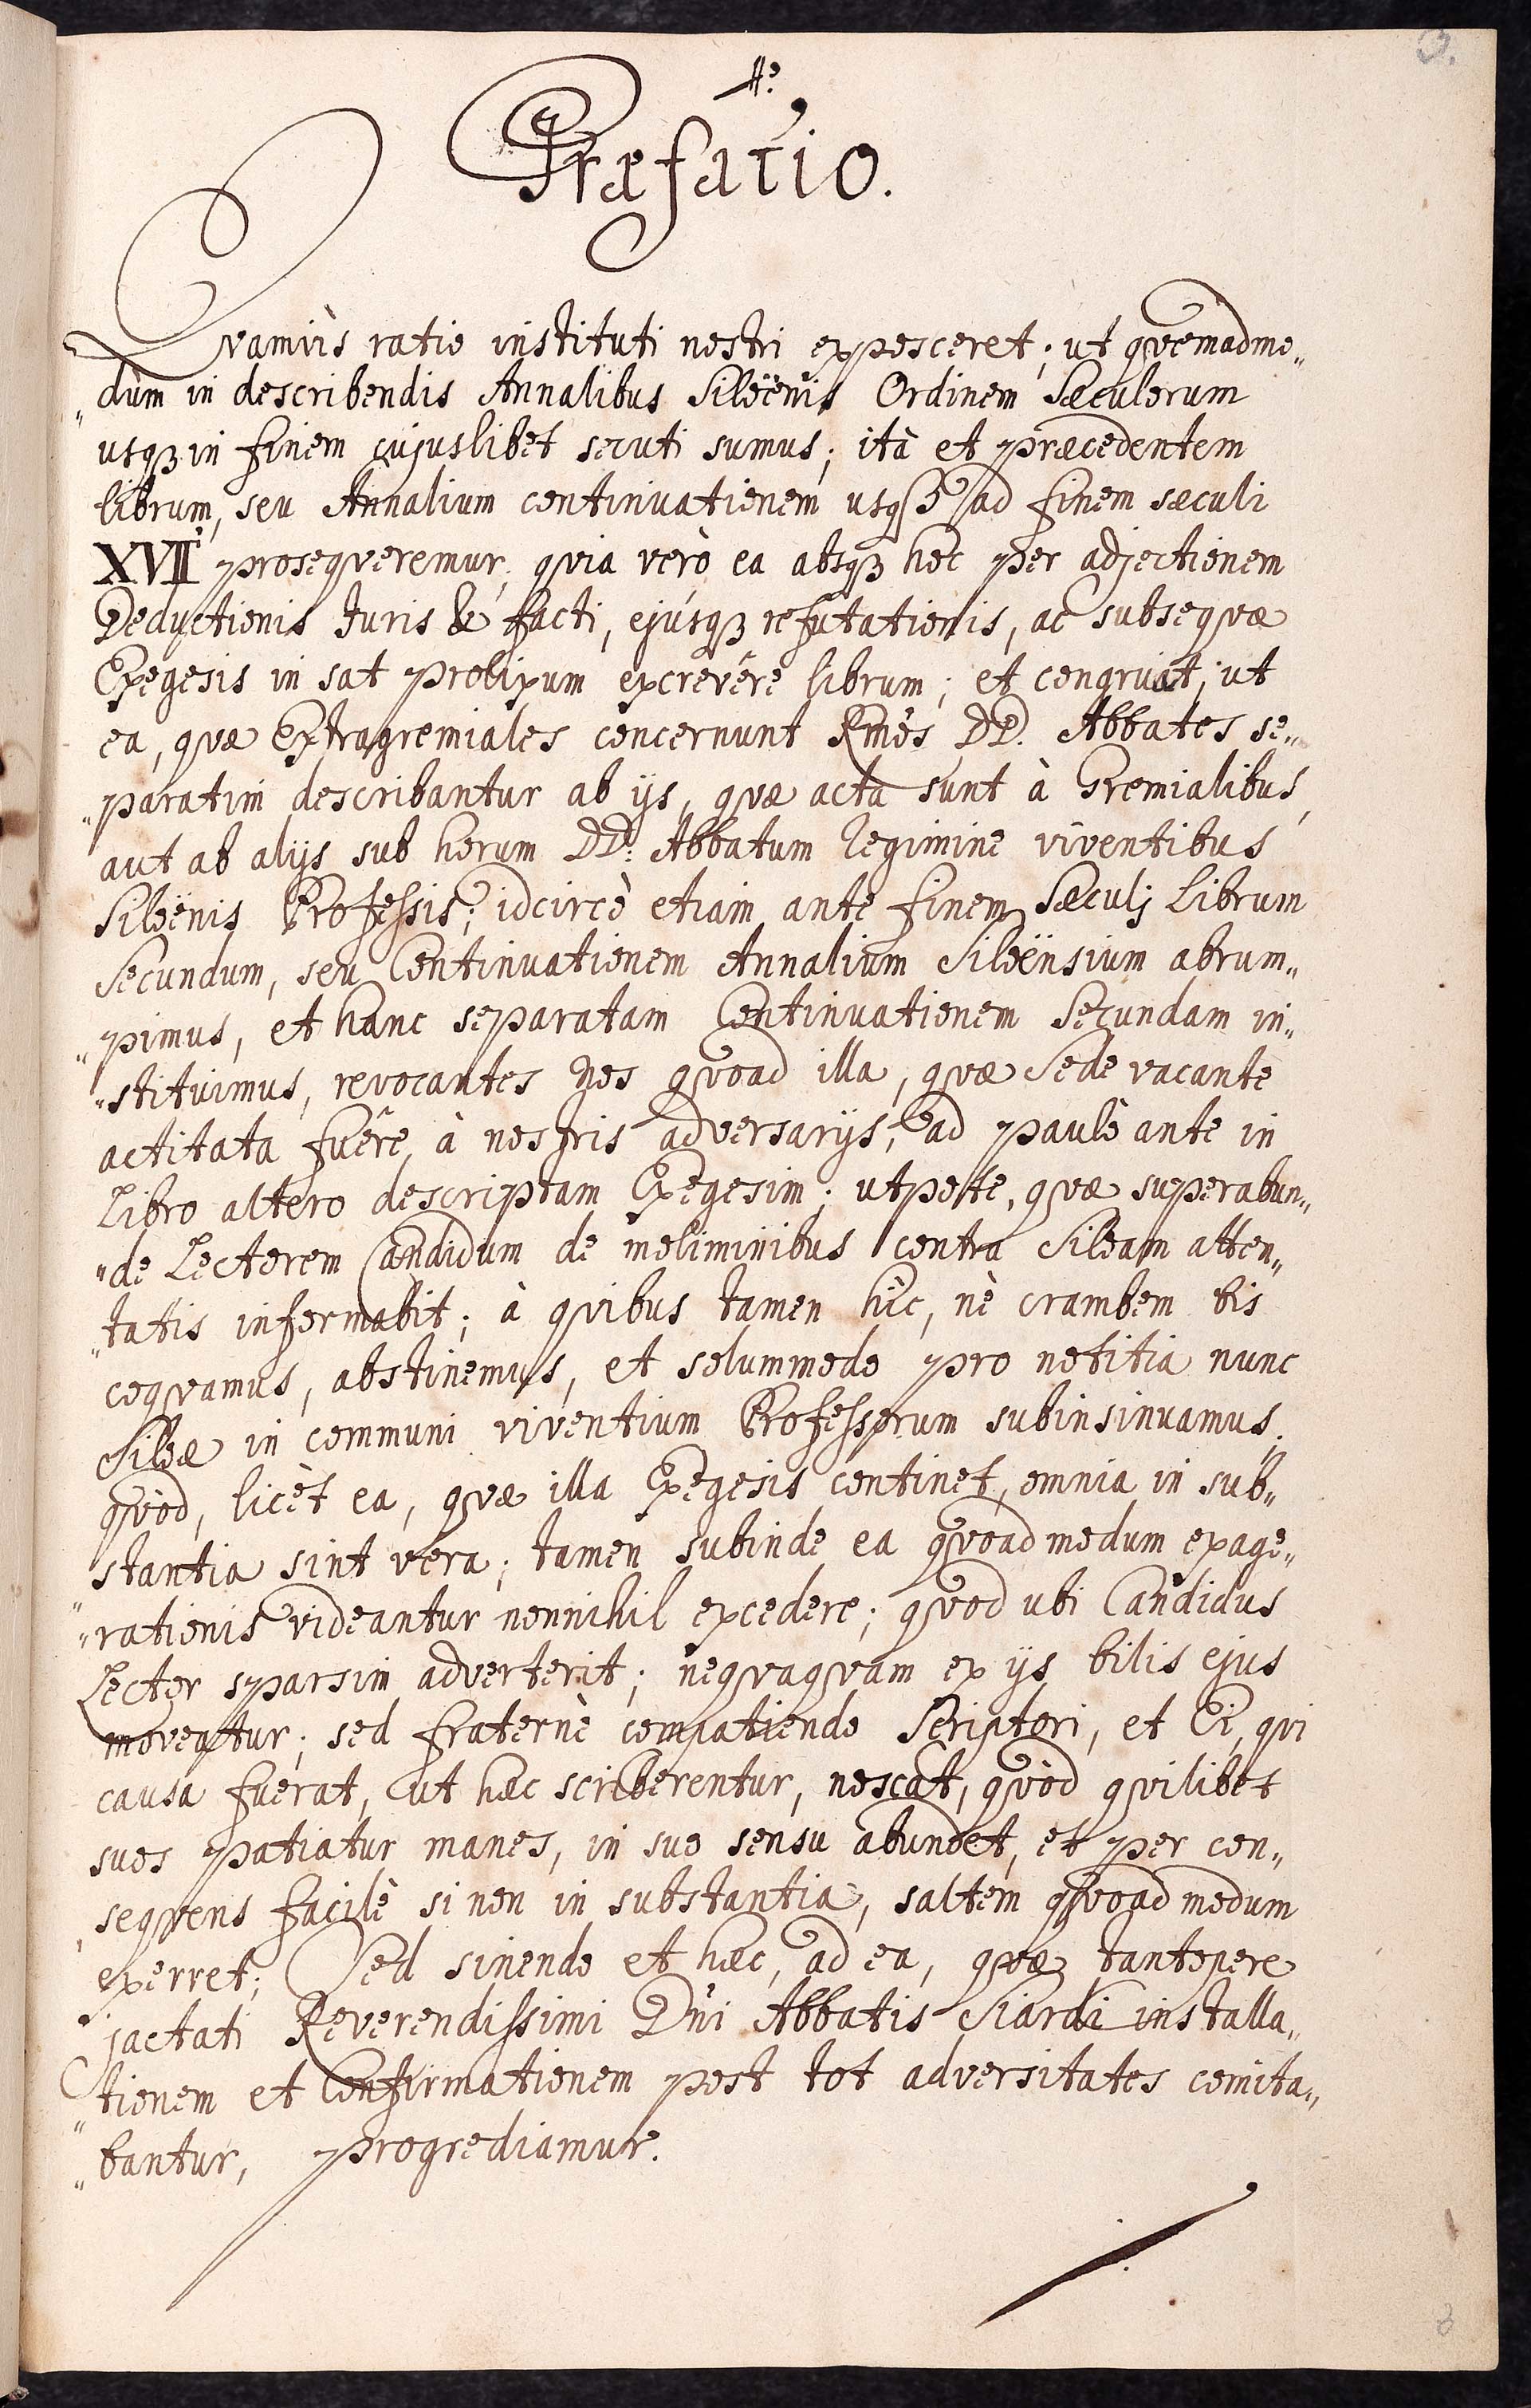 3.
Præfatio.
Qvamvis ratio instituti nostri exposceret; ut qvemadmo„
„dùm in describendis Annalibus Siloënis Ordinem Sæculorum
usqꝫ in finem cujuslibet secuti sumus; ità et præcedentem
librum, seu Annalium continuationem usqꝫ ad finem sæculi
XVII prosequeremur; qvia verò ea absqꝫ hoc per adjectionem
Deductionis Juris & facti, ejúsqꝫ refutationis, ac subseqvæ
Exegesis in sat prolixum excrevêre librum; et congruat; ut
ea, qvæ Extragremiales concernunt Rmos DD. Abbates se„
„paratim describantur ab ijs, qvæ acta sunt à Gremialibus,
aut ab alijs sub horum DD: Abbatum Regimine viventibus
Siloënis Professis; idcircò etiam ante finem Sæculj Librum
Secundum, seu Continuationem Annalium Siloënsium abrum„
„pimus, et hanc separatam Continuationem Secundam in„
„stituimus, revocantes nos qvoad illa, qvæ Sede vacante
actitata fuêre à nostris adversarijs, ad paulò ante in
Libro altero descriptam Exegesim; utpote, qvæ superabun„
„de Lectorem Candidum de moliminibus contra Siloam atten„
„tatis informabit; à qvibus tamen hìc, nè crambem bis
coqvamus, abstinemus, et solummodo pro notitia nunc
Siloæ in communi viventium Professorum subinsinuamus;
qvòd, licèt ea, qvæ illa Exegesis continet, omnia in sub„
stantia sint vera; tamen subinde ea qvoad modum exage„
„rationis videantur nonnihil excedere; qvod ubi Candidus
Lector sparsim adverterit; neqvaqvam ex ijs bilis ejus
moveatur; sed fraternè compatiendo Scriptori, et Ei, qvi
causa fuerat, ut hæc scriberentur, noscat, qvòd qvilibet
suos patiatur manes, in suo sensu abundet, et per con„
seqvens facilè si non in substantia, saltem qvoad modum
exerret; Sed sinendo et hæc, ad ea, qvæ tantopere
jactati Reverendissimi Dñi Abbatis Siardi installa„
„tionem et Confirmationem post tot adversitates comita„
„bantur, progrediamur.